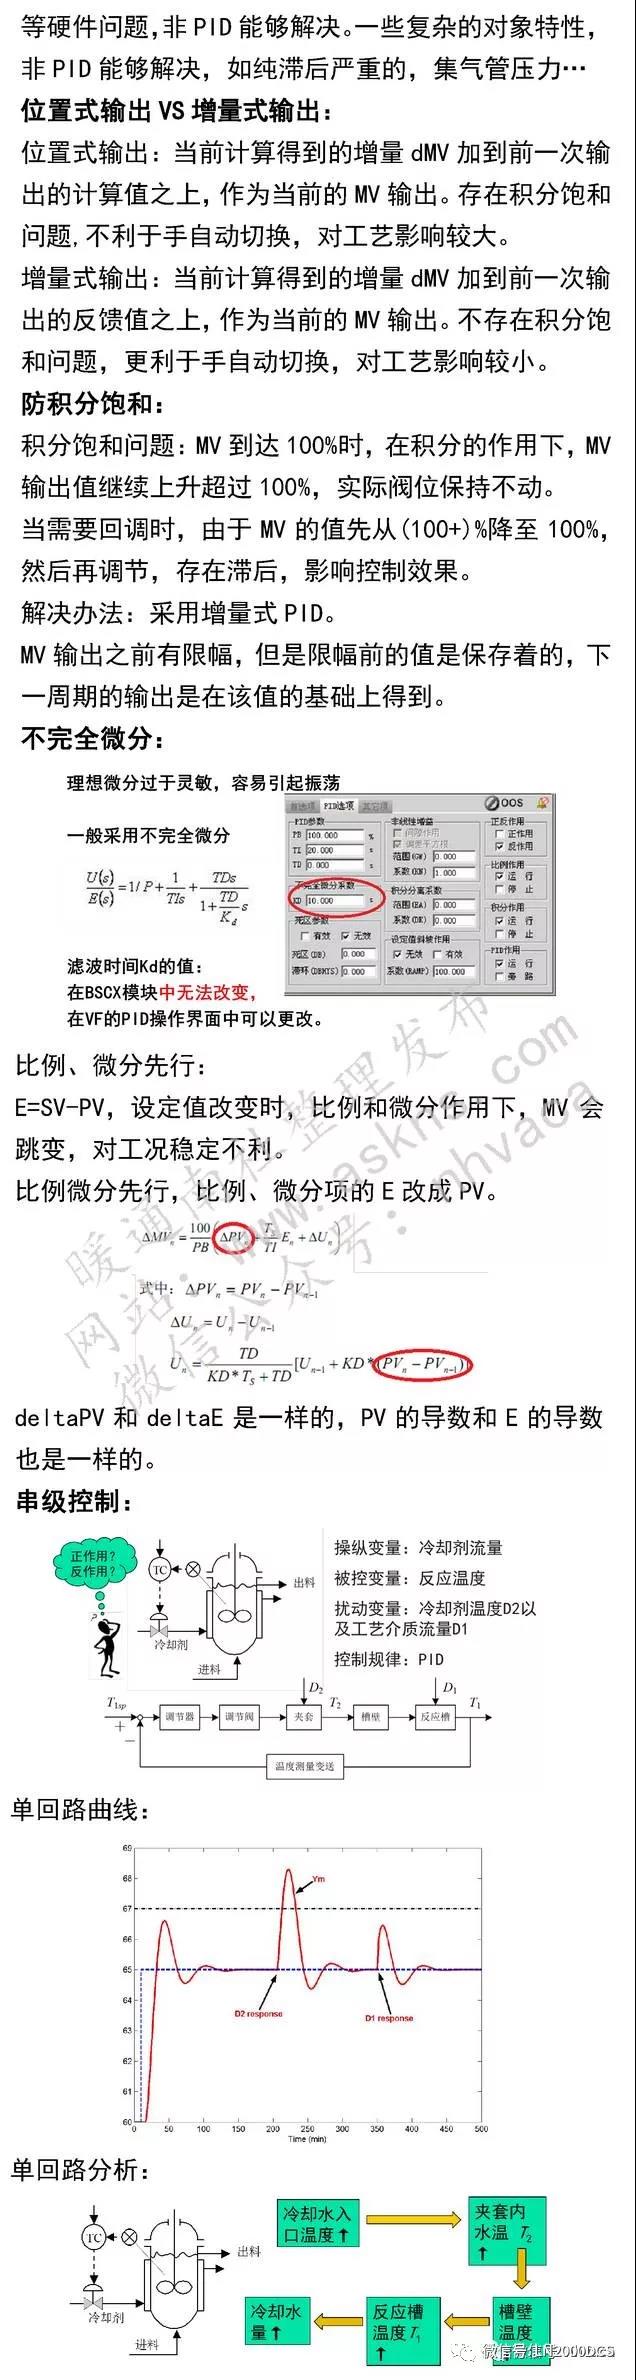 等硬件问题,非PID能够解决。一些复杂的对象特性，
非PID能够解决，如纯滞后严重的，集气管压力…
位置式输出VS增量式输出：
位置式输出：当前计算得到的增量dMV加到前一次输
出的计算值之上，作为当前的MV输出。存在积分饱和
问题,不利于手自动切换，对工艺影响较大。
增量式输出：当前计算得到的增量dMV加到前一次输
出的反馈值之上，作为当前的MV输出。不存在积分饱
和问题，更利于手自动切换，对工艺影响较小。
防积分饱和：
积分饱和问题：MV到达100%时，在积分的作用下，MV
输出值继续上升超过100%，实际阀位保持不动。
当需要回调时，由于MV的值先从(100+)%降至100%，
然后再调节，存在滞后，影响控制效果。
解决办法：采用增量式PID。
MV输出之前有限幅，但是限幅前的值是保存着的，下
一周期的输出是在该值的基础上得到。
不完全微分：
理想微分过于灵敏，容易引起振荡
一般采用不完全微分
U(s)/E(s)=1/P+1/TIs+TDs/(1+(TD/Kd)s)
滤波时间Kd的值：
在BSCX模块中无法改变，
在VF的PID操作界面中可以更改。
首选项 PID选项 其它项 OOS
PID参数
PB 100.000 %
TI 20.000 s
TD 0.000 s
不完全微分系数
KD 10.000 s
死区参数
有效 无效
死区(DB) 0.000
滞环(DBHYS) 0.000
非线性增益
间隙作用
偏差平方根
范围(GW) 0.000
系数(KN) 1.000
积分分离系数
范围(EA) 0.000
系数(DK) 0.000
设定值斜坡作用
无效 有效
系数(RAMP) 100.000
正反作用
正作用
反作用
比例作用
运 行
停 止
积分作用
运 行
停 止
PID作用
运 行
旁 路
比例、微分先行：
E=SV-PV，设定值改变时，比例和微分作用下，MV会
跳变，对工况稳定不利。
比例微分先行，比例、微分项的E改成PV。
ΔMVn=100/PB(ΔPVn+Ts/TI En+ΔUn)
式中：ΔPVn=PVn-PVn-1
ΔUn=Un-Un-1
Un=TD/(KD*TS+TD)[Un-1+KD*(PVn-PVn-1)]
暖通南社整理发布
网站：www.askns.com
微信公众号：nhvaca
deltaPV和deltaE是一样的，PV的导数和E的导数
也是一样的。
串级控制：
正作用？
反作用？
?
TC
出料
冷却剂
进料
操纵变量：冷却剂流量
被控变量：反应温度
扰动变量：冷却剂温度D2以
及工艺介质流量D1
控制规律：PID
T1sp
+
−
调节器
调节阀
D2
夹套
T2
槽壁
D1
反应槽
T1
温度测量变送
单回路曲线：
69
68
67
66
65
64
63
62
61
60
Ym
D2 response
D1 response
0 50 100 150 200 250 300 350 400 450 500
Time (min)
单回路分析：
TC
出料
冷却剂
进料
冷却水入
口温度↑
夹套内
水温 T2
↑
槽壁
温度
↑
反应槽
温度T1
↑
冷却水
量↑